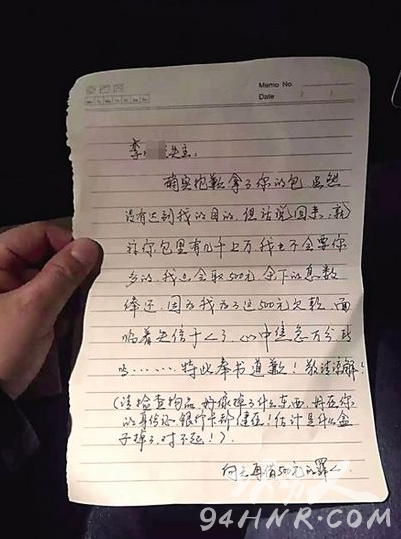 Memo No.
Date / /
Mo Tu We Th Fr Sa Su
李 失主：
萌实抱歉拿了你的包，虽然
没有达到我的目的，但话说回来，就
算你包里有几千上万我也不会要你
多的，我也会取500元，余下的悉数
奉还，因为我为了这500元欠款，面
临着失信于人了，心中焦急万分
……特此奉书道歉！敬请谅解！
（请检查物品，好像掉了什么东西，好在你
的身份证、银行卡都健在！估计是什么盒
子掉了，对不起！）
向元再借500元的罪人
94HNR.COM